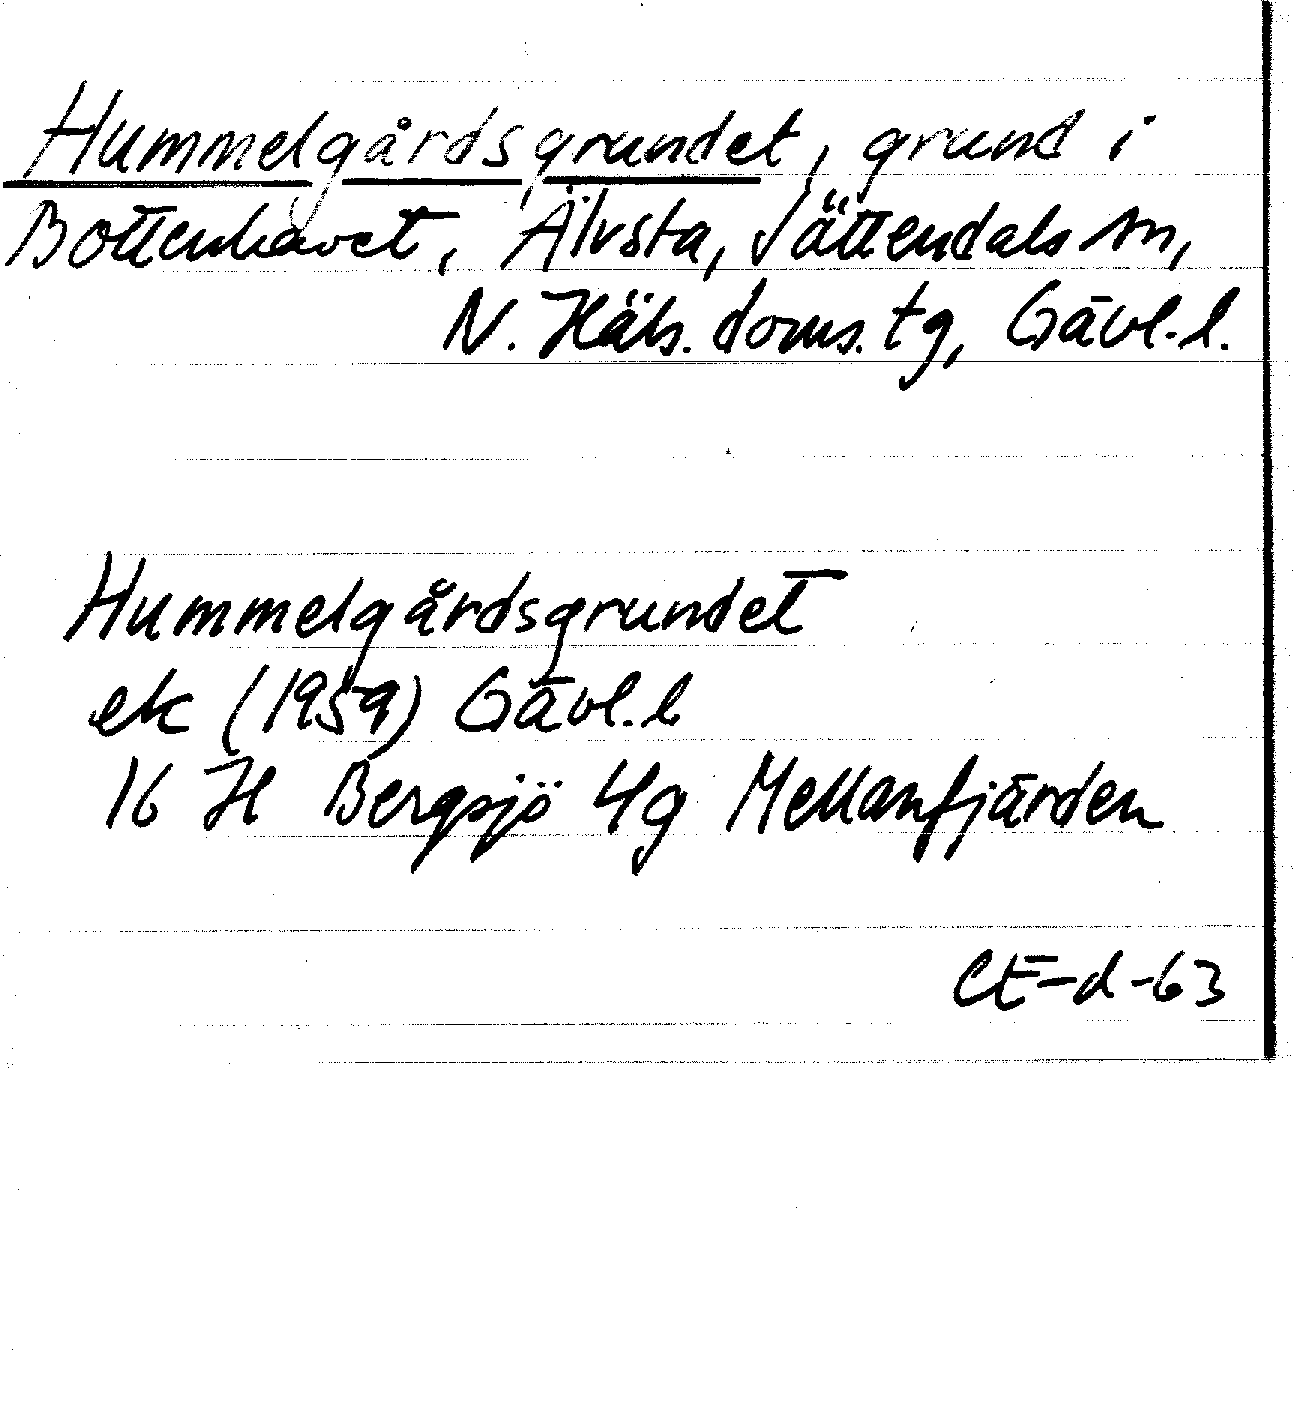 Hummelgårdsgrundet, grund i
Bottenhavet, Älvsta, Jättendals sn,
N. Häls. doms. tg, Gävl. l.
Hummelgårdsgrundet
ek (1959) Gävl. l.
16 H Bergsjö 4g Mellanfjärden
CE-d-63